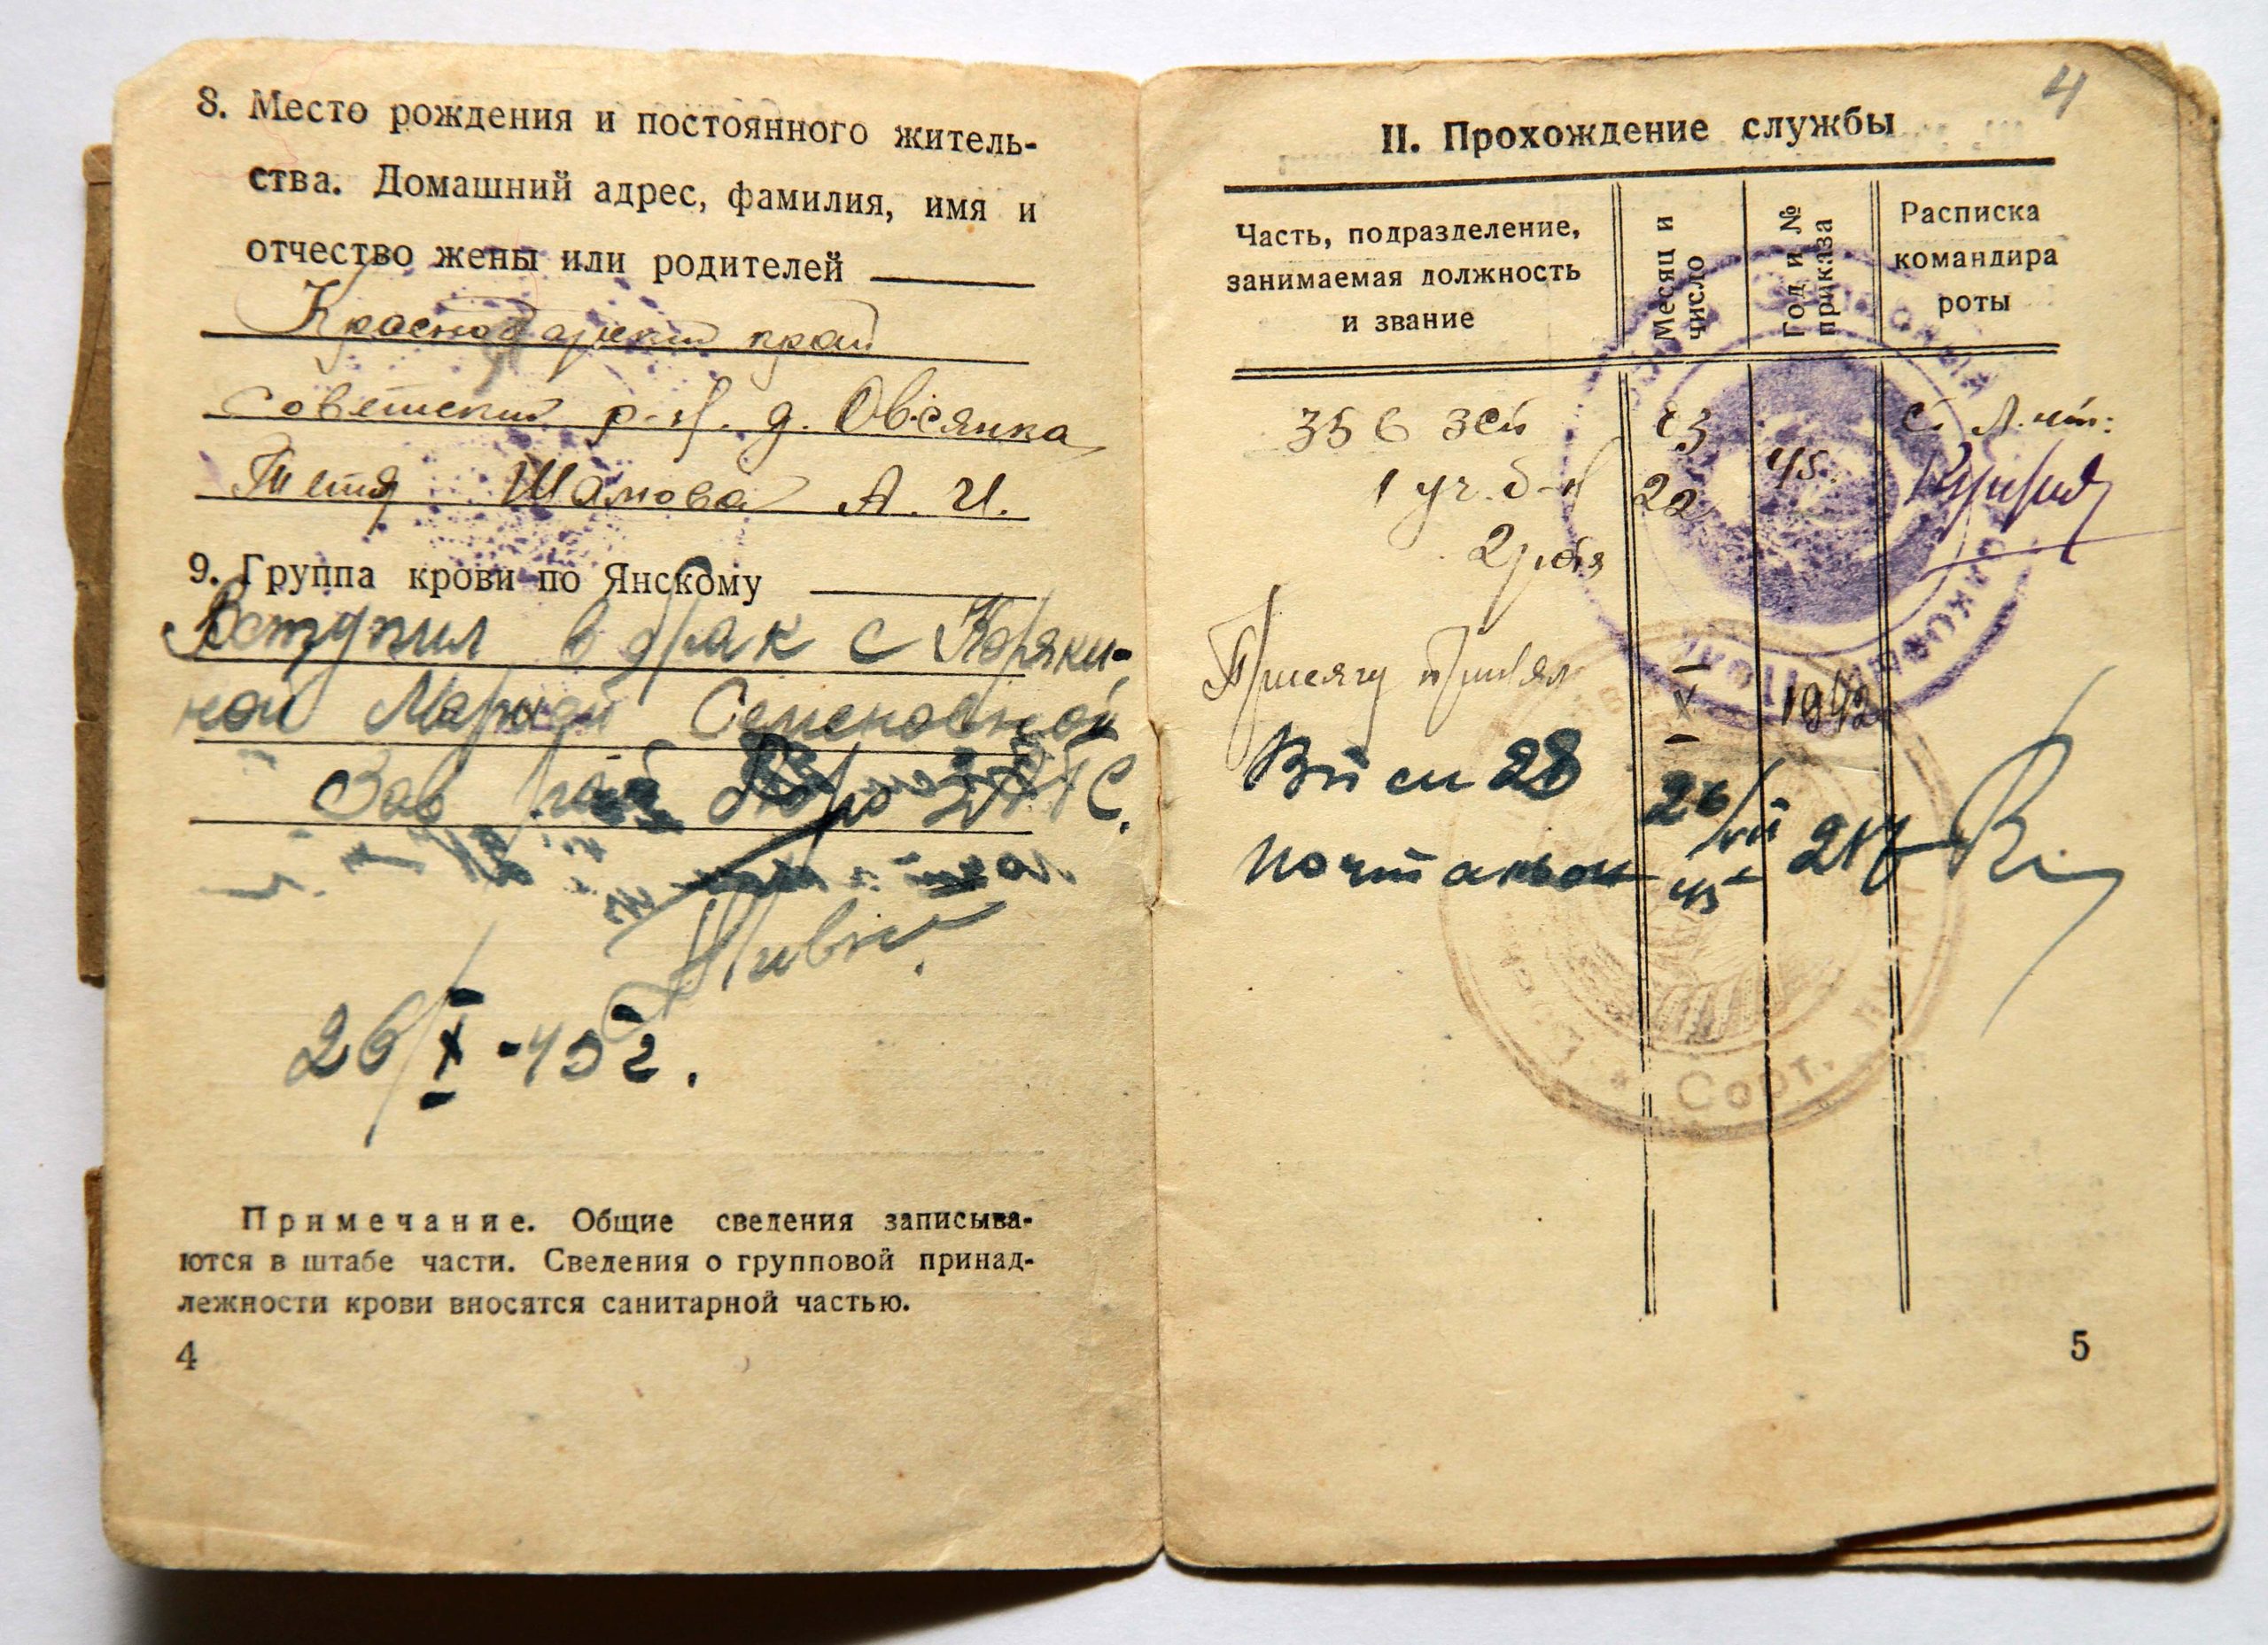 8. Место рождения и постоянного житель-
ства. Домашний адрес, фамилия, имя и
отчество жены или родителей
Краснодарский край
советский р-н. д. Овсянка
Тетя Шамова А. И.
9. Группа крови по Янскому
Вступил в брак с Коряки-
ной Марией Семеновной
Зав бюро ЗАГС.
26/X-45г.
Примечание. Общие сведения записыва-
ются в штабе части. Сведения о групповой принад-
лежности крови вносятся санитарной частью.
4
4
II. Прохождение службы
Часть, подразделение,
занимаемая должность
и звание
Месяц и
число
Год и №
приказа
Расписка
командира
роты
356 зсп
1 уч. б-н 22 45.
2 рота
Присягу принял X 1942
28
почтальон 26/VII 45 217
Сорт.
5